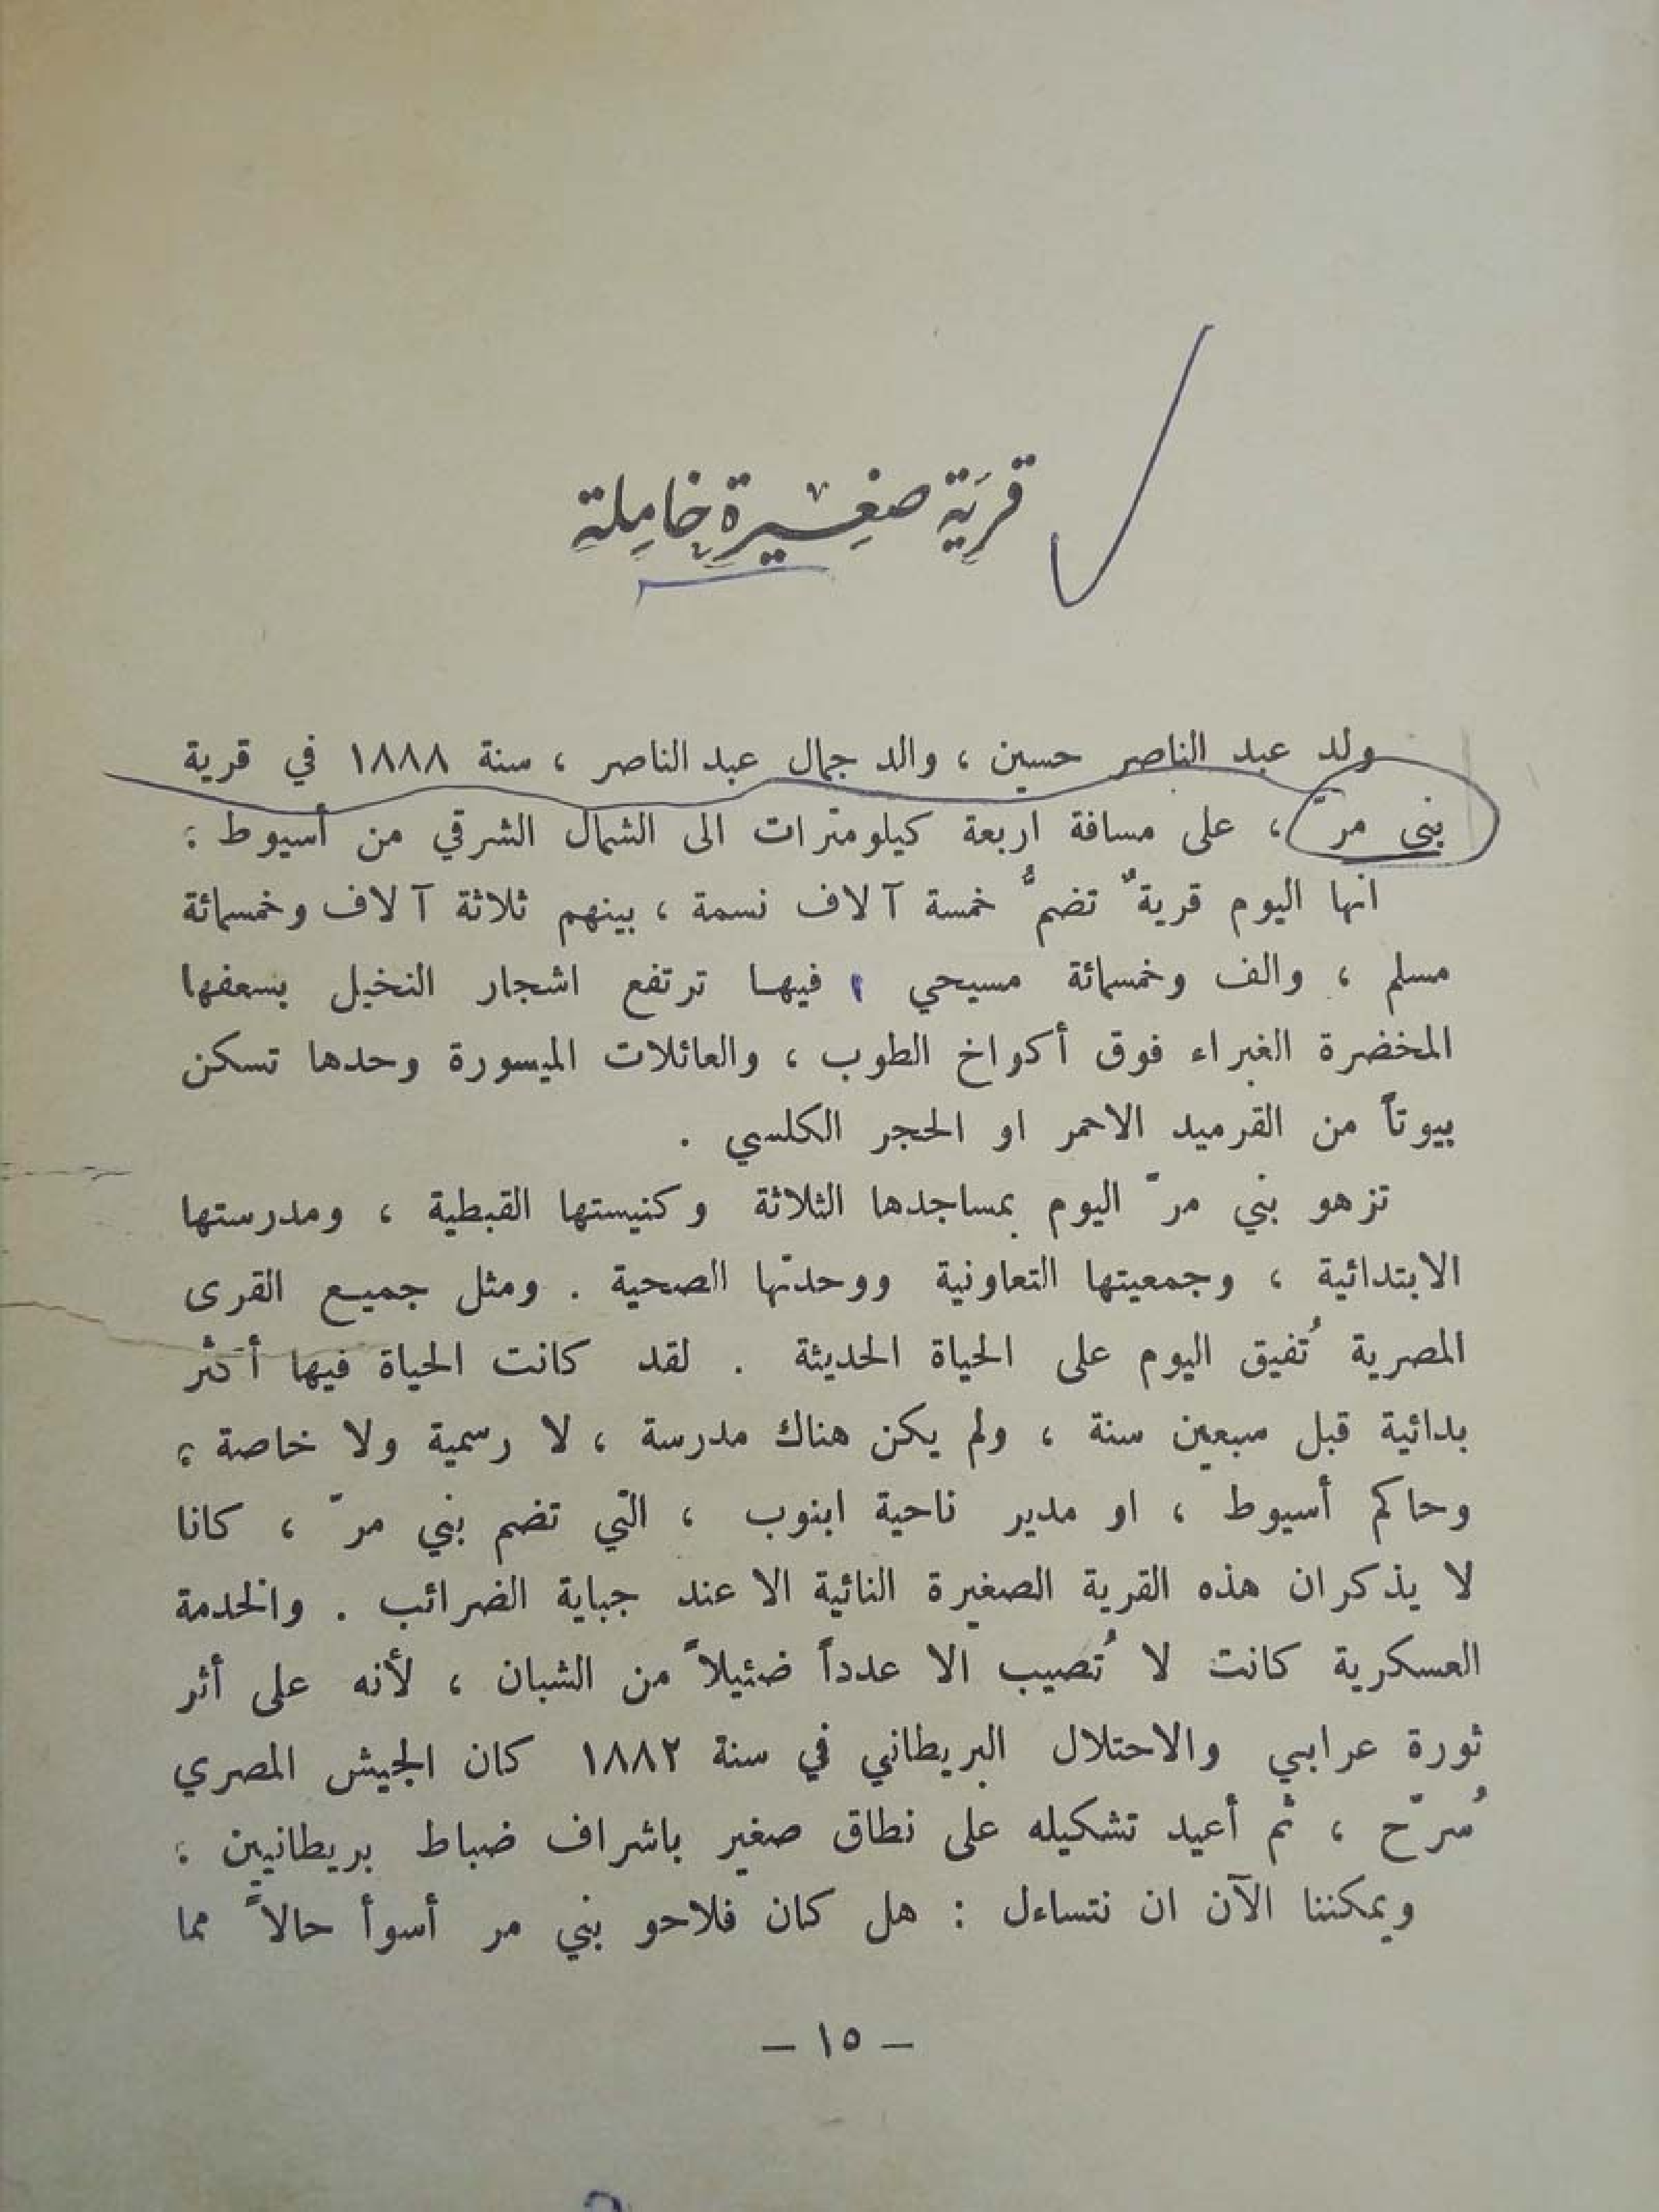 قرية صغيرة خاملة
ولد عبد الناصر حسين ، والد جمال عبد الناصر ، سنة ١٨٨٨ في قرية
بني مرّ ، على مسافة اربعة كيلومترات الى الشمال الشرقي من أسيوط :
انها اليوم قريةٌ تضمُّ خمسة آلاف نسمة ، بينهم ثلاثة آلاف وخمسمائة
مسلم ، والف وخمسمائة مسيحي ، فيها ترتفع اشجار النخيل بسعفها
المخضرة الغبراء فوق أكواخ الطوب ، والعائلات الميسورة وحدها تسكن
بيوتاً من القرميد الاحمر او الحجر الكلسي .
تزهو بني مرّ اليوم بمساجدها الثلاثة وكنيستها القبطية ، ومدرستها
الابتدائية ، وجمعيتها التعاونية ووحدتها الصحية . ومثل جميع القرى
المصرية تُفيق اليوم على الحياة الحديثة . لقد كانت الحياة فيها أكثر
بدائية قبل سبعين سنة ، ولم يكن هناك مدرسة ، لا رسمية ولا خاصة ؛
وحاكم أسيوط ، او مدير ناحية ابنوب ، التي تضم بني مرّ ، كانا
لا يذكران هذه القرية الصغيرة النائية الا عند جباية الضرائب . والخدمة
العسكرية كانت لا تُصيب الا عدداً ضئيلاً من الشبان ، لأنه على أثر
ثورة عرابي والاحتلال البريطاني في سنة ١٨٨٢ كان الجيش المصري
سُرّح ، ثم أعيد تشكيله على نطاق صغير باشراف ضباط بريطانيين :
ويمكننا الآن ان نتساءل : هل كان فلاحو بني مر أسوأ حالاً مما
— ١٥ —